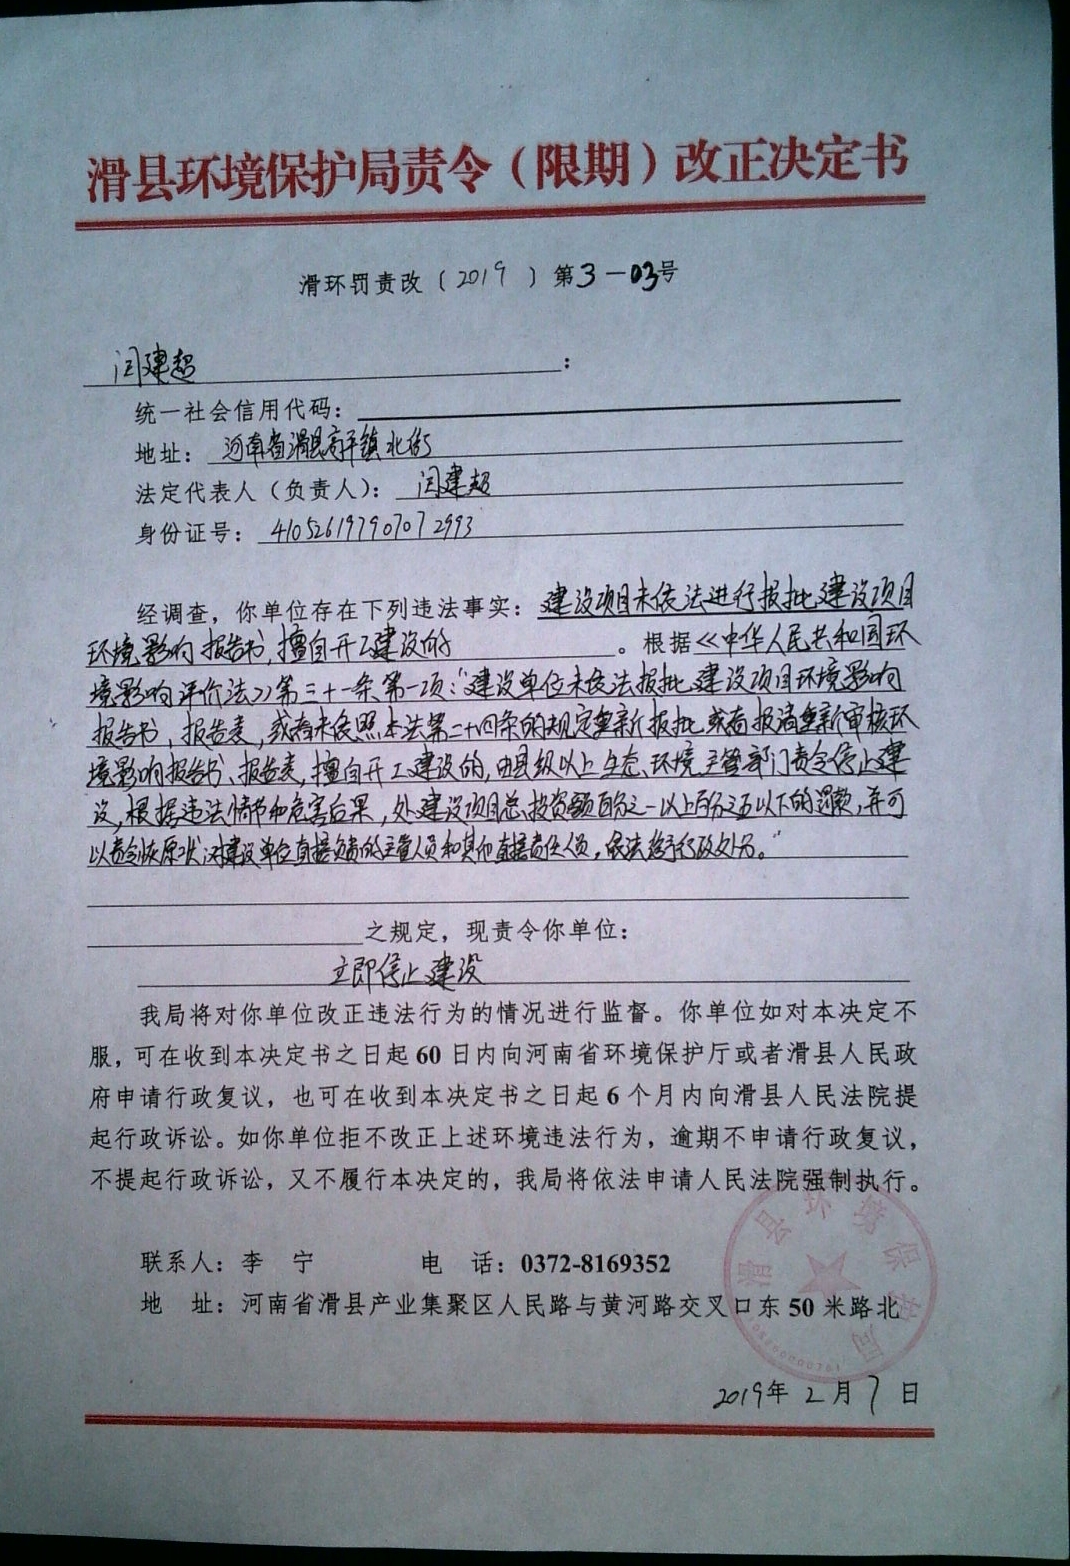 滑县环境保护局责令（限期）改正决定书
滑环罚责改（2019）第3-03号
闫建超：
统一社会信用代码：
地址：河南省滑县高平镇北街
法定代表人（负责人）：闫建超
身份证号：410526197907072993
经调查，你单位存在下列违法事实：建设项目未依法进行报批建设项目
环境影响报告书，擅自开工建设的。根据《中华人民共和国环
境影响评价法》第三十一条第一项："建设单位未依法报批建设项目环境影响
报告书、报告表，或者未依照本法第二十四条的规定重新报批或者报请重新审核环
境影响报告书、报告表，擅自开工建设的，由县级以上生态环境主管部门责令停止建
设，根据违法情节和危害后果，处建设项目总投资额百分之一以上百分之五以下的罚款，并可
以责令恢原状；对建设单位直接负责的主管人员和其他直接责任人员，依法给予行政处分。"
之规定，现责令你单位：
立即停止建设
我局将对你单位改正违法行为的情况进行监督。你单位如对本决定不
服，可在收到本决定书之日起60日内向河南省环境保护厅或者滑县人民政
府申请行政复议，也可在收到本决定书之日起6个月内向滑县人民法院提
起行政诉讼。如你单位拒不改正上述环境违法行为，逾期不申请行政复议，
不提起行政诉讼，又不履行本决定的，我局将依法申请人民法院强制执行。
滑县环境保护局
联系人：李 宁 电 话：0372-8169352
地 址：河南省滑县产业集聚区人民路与黄河路交叉口东50米路北
2019年2月7日